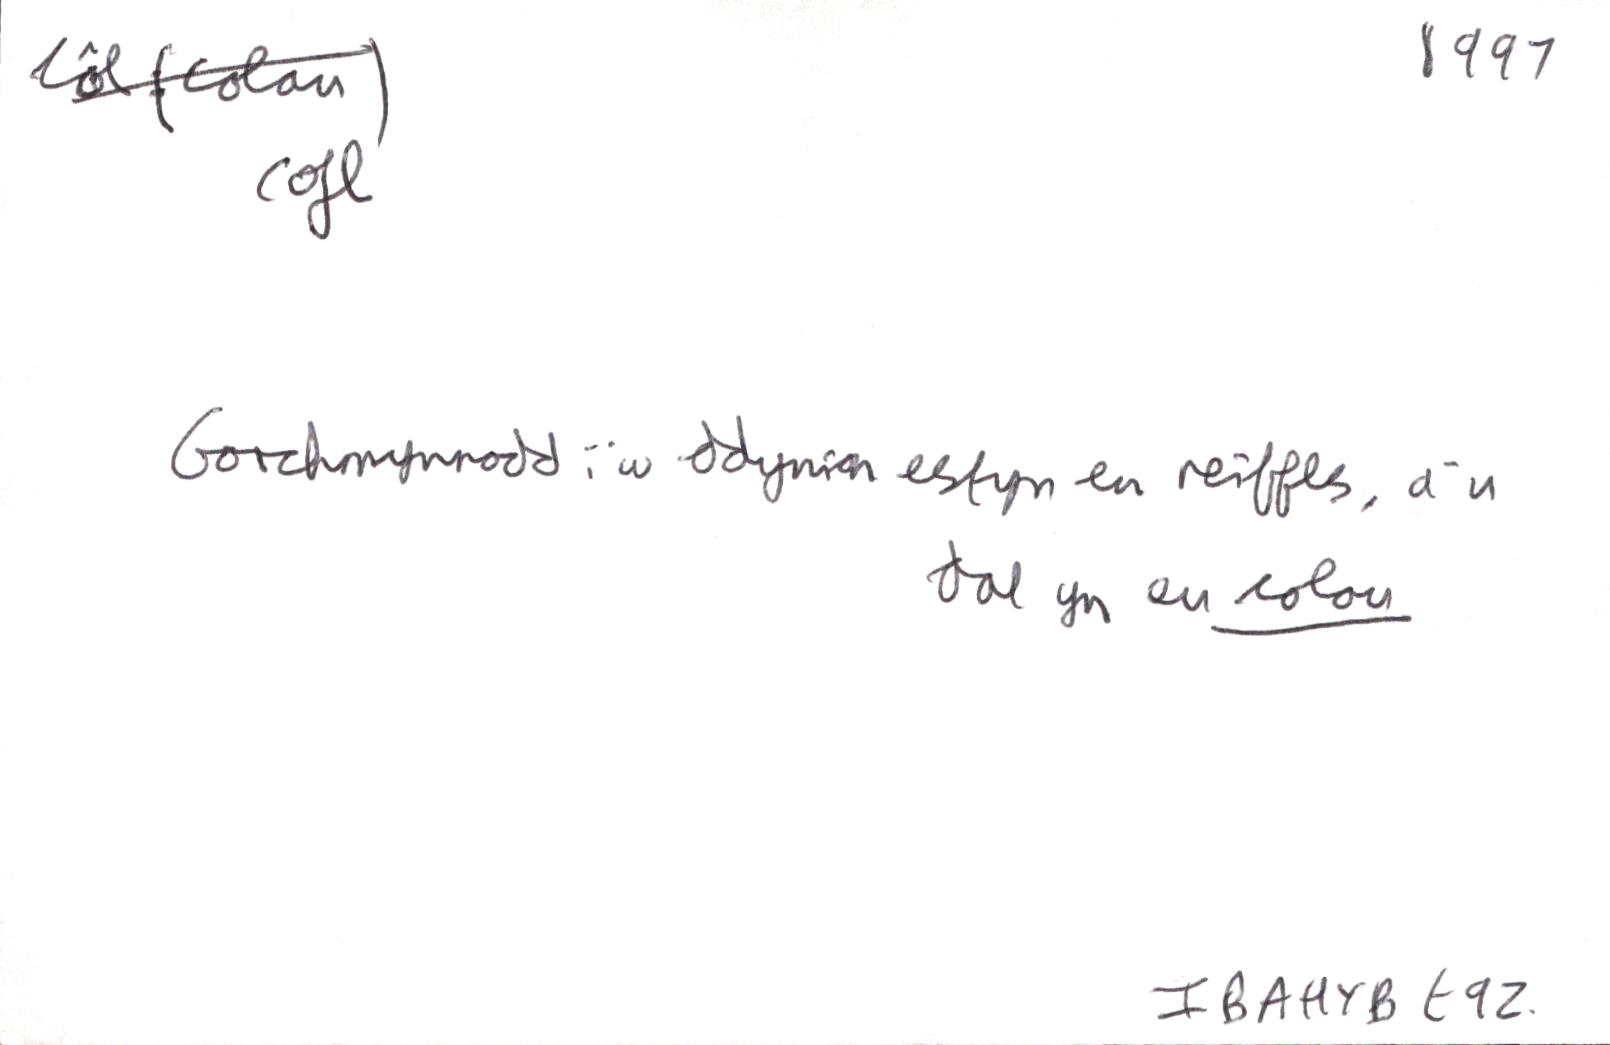 Côl (colau) 1997
cofl
Gorchmynnodd i'w ddynion estyn eu reiffles, a'u
dal yn eu colau
IBAHYB t92.